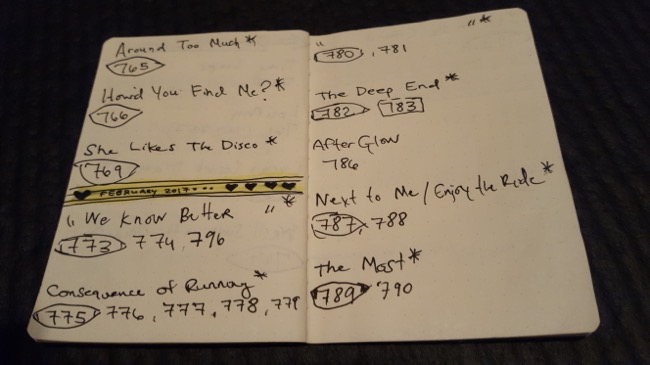 Around Too Much *
765
How'd You Find Me? *
766
She Likes The Disco *
769
♥ FEBRUARY 2017... ♥ ♥ ♥ ♥
" We Know Better " *
773 774, 796
Consequence of Runnay *
775 776, 777, 778, 779
" " *
780, 781
The Deep End *
782 783
After Glow
786
Next to Me / Enjoy the Ride *
787, 788
The Most *
789 790